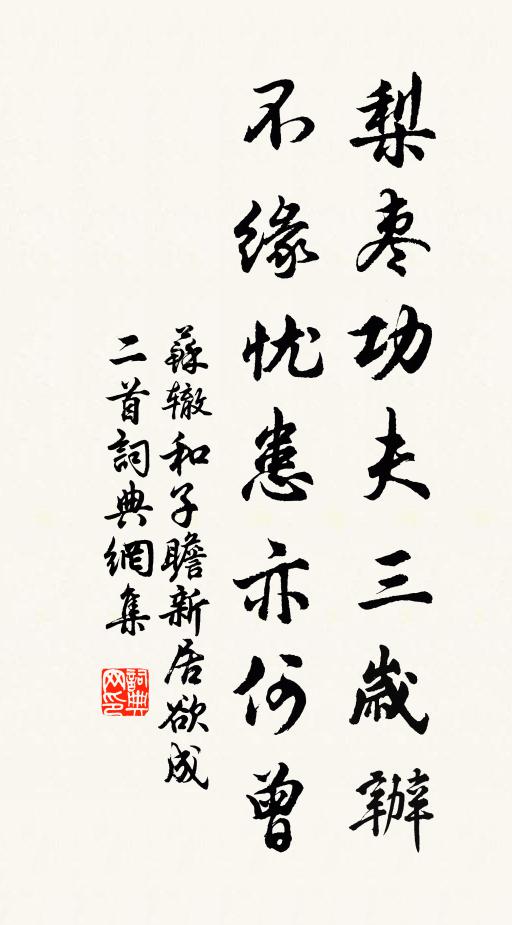 梨枣功夫三歲辦
不緣忧患亦何曾
蘇辙和子瞻新居欲成
二首詞典網集
詞典
网印